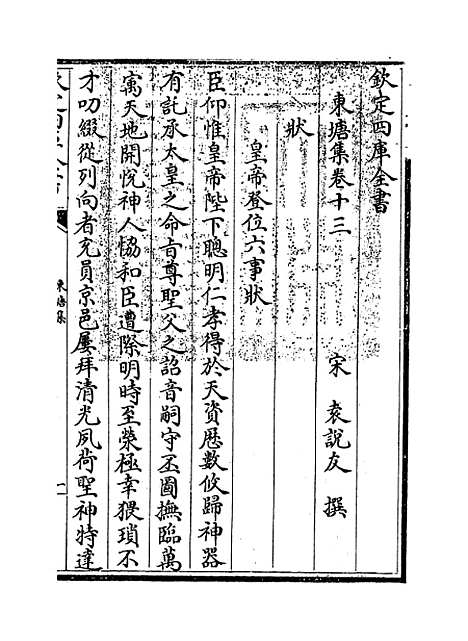 欽定四庫全書
東塘集卷十三
宋 袁說友 撰
狀
皇帝登位六事狀
臣仰惟皇帝陛下聰明仁孝得於天資歷數攸歸神器
有託承太皇之命音尊聖父之詔音嗣守丕圖撫臨萬
寓天地開悅神人恊和臣遭際明時至榮極幸猥瑣不
才叨綴從列向者充員京邑屢拜清光夙荷聖神特達
東塘集